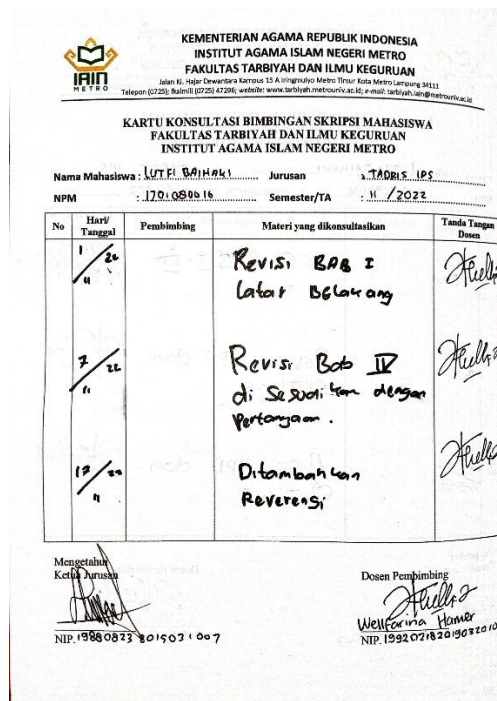 KEMENTERIAN AGAMA REPUBLIK INDONESIA
INSTITUT AGAMA ISLAM NEGERI METRO
FAKULTAS TARBIYAH DAN ILMU KEGURUAN
Jalan Ki. Hajar Dewantara Kampus 15 A Iringmulyo Metro Timur Kota Metro Lampung 34111
Telepon (0725); faximili (0725) 47296; website: www.tarbiyah.metrouniv.ac.id; e-mail: tarbiyah.iain@metrouniv.ac.id
IAIN
METRO
KARTU KONSULTASI BIMBINGAN SKRIPSI MAHASISWA
FAKULTAS TARBIYAH DAN ILMU KEGURUAN
INSTITUT AGAMA ISLAM NEGERI METRO
Nama Mahasiswa : LUTFI BAIHAKI Jurusan : TADRIS IPS
NPM : 1701080016 Semester/TA : 11 / 2022
No Hari/ Tanggal Pembimbing Materi yang dikonsultasikan Tanda Tangan Dosen
1/11 22 Revisi BAB I
Latar BELakang
7/11 22 Revisi Bab IV
di Sesuaikan dengan
Pertanyaan.
17/11 Ditambahkan
Reverensi
Mengetahui
Ketua Jurusan
NIP. 19880823 201503 1 007
Dosen Pembimbing
Wellfarina Hamer
NIP. 199202182019032010